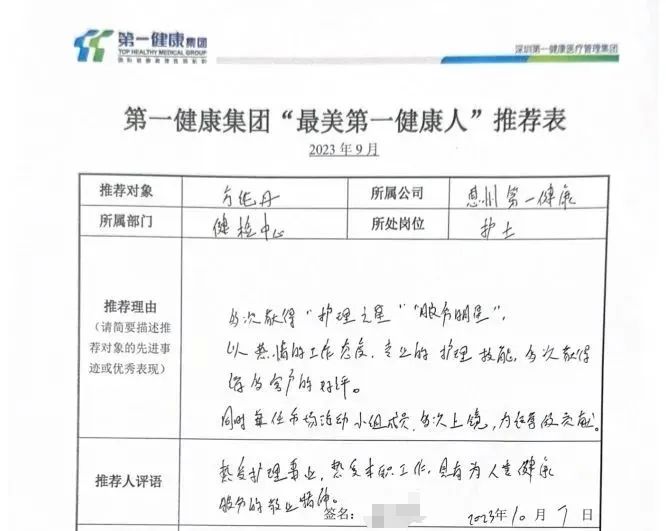 第一健康集团
TOP HEALTHY MEDICAL GROUP
深圳第一健康医疗管理集团
第一健康集团“最美第一健康人”推荐表
2023 年 9 月
推荐对象 所属公司 惠州第一健康
所属部门 健检中心 所处岗位 护士
推荐理由
(请简要描述推
荐对象的先进事
迹或优秀表现)
多次获得“护理之星”“服务明星”,
以热情的工作态度,专业的护理技能,多次获得
客户的好评。
同时 市场活动小组成员,多次上镜,为 贡献。
推荐人评语
热爱护理事业,热爱本职工作,具有为人类健康
服务的敬业精神。
签名: 2023年10月7日